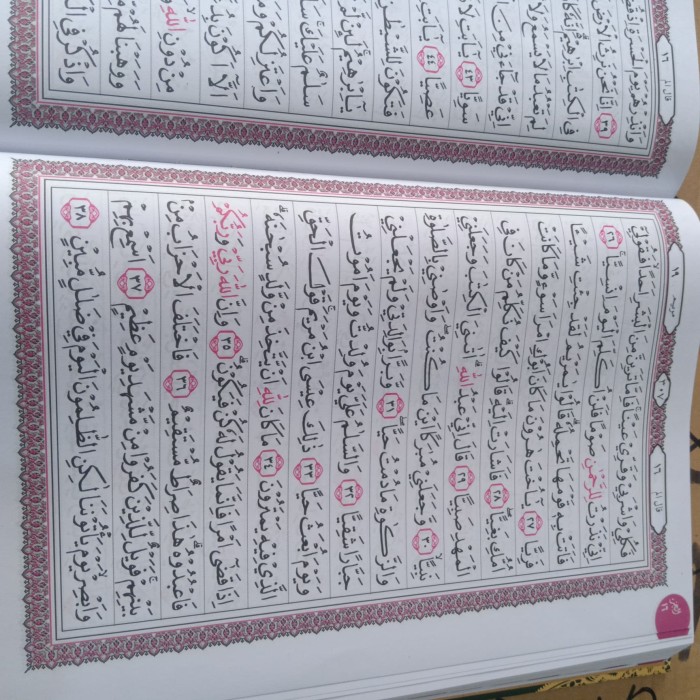 قال الم ١٦
٣٠٧
مريم ١٩
فَكُلِيْ وَاشْرَبِيْ وَقَرِّيْ عَيْنًا ۚ فَاِمَّا تَرَيِنَّ مِنَ الْبَشَرِ اَحَدًا ۙ فَقُوْلِيْٓ
اِنِّيْ نَذَرْتُ لِلرَّحْمٰنِ صَوْمًا فَلَنْ اُكَلِّمَ الْيَوْمَ اِنْسِيًّا ۚ ٢٦
فَاَتَتْ بِهٖ قَوْمَهَا تَحْمِلُهٗ ۗ قَالُوْا يٰمَرْيَمُ لَقَدْ جِئْتِ شَيْـًٔا
فَرِيًّا ٢٧ يٰٓاُخْتَ هٰرُوْنَ مَا كَانَ اَبُوْكِ امْرَاَ سَوْءٍ وَّمَا كَانَتْ
اُمُّكِ بَغِيًّا ۖ ٢٨ فَاَشَارَتْ اِلَيْهِ ۗ قَالُوْا كَيْفَ نُكَلِّمُ مَنْ كَانَ فِى
الْمَهْدِ صَبِيًّا ٢٩ قَالَ اِنِّيْ عَبْدُ اللّٰهِ ۗ اٰتٰنِيَ الْكِتٰبَ وَجَعَلَنِيْ
نَبِيًّا ۙ ٣٠ وَّجَعَلَنِيْ مُبٰرَكًا اَيْنَ مَا كُنْتُ ۖ وَاَوْصٰنِيْ بِالصَّلٰوةِ
وَالزَّكٰوةِ مَا دُمْتُ حَيًّا ۖ ٣١ وَّبَرًّا ۢ بِوَالِدَتِيْ وَلَمْ يَجْعَلْنِيْ
جَبَّارًا شَقِيًّا ٣٢ وَالسَّلٰمُ عَلَيَّ يَوْمَ وُلِدْتُّ وَيَوْمَ اَمُوْتُ
وَيَوْمَ اُبْعَثُ حَيًّا ٣٣ ذٰلِكَ عِيْسَى ابْنُ مَرْيَمَ ۚ قَوْلَ الْحَقِّ
الَّذِيْ فِيْهِ يَمْتَرُوْنَ ٣٤ مَا كَانَ لِلّٰهِ اَنْ يَّتَّخِذَ مِنْ وَّلَدٍ ۙ سُبْحٰنَهٗ ۗ
اِذَا قَضٰٓى اَمْرًا فَاِنَّمَا يَقُوْلُ لَهٗ كُنْ فَيَكُوْنُ ۗ ٣٥ وَاِنَّ اللّٰهَ رَبِّيْ وَرَبُّكُمْ
فَاعْبُدُوْهُ ۗ هٰذَا صِرَاطٌ مُّسْتَقِيْمٌ ٣٦ فَاخْتَلَفَ الْاَحْزَابُ مِنْۢ
بَيْنِهِمْ ۚ فَوَيْلٌ لِّلَّذِيْنَ كَفَرُوْا مِنْ مَّشْهَدِ يَوْمٍ عَظِيْمٍ ٣٧ اَسْمِعْ بِهِمْ
وَاَبْصِرْ ۙ يَوْمَ يَأْتُوْنَنَا لٰكِنِ الظّٰلِمُوْنَ الْيَوْمَ فِيْ ضَلٰلٍ مُّبِيْنٍ ٣٨
الجزء ١٦
قال الم ١٦
وَاَنْذِرْهُمْ يَوْمَ الْحَسْرَةِ اِذْ قُضِيَ
٣٩ اِنَّا نَحْنُ نَرِثُ الْاَرْضَ
فِى الْكِتٰبِ اِبْرٰهِيْمَ ۗ اِنَّهٗ كَانَ
لِمَ تَعْبُدُ مَا لَا يَسْمَعُ وَلَا
اِنِّيْ قَدْ جَاۤءَنِيْ مِنَ
سَوِيًّا ٤٣ يٰٓاَبَتِ لَا
عَصِيًّا ٤٤ يٰٓاَبَتِ
فَتَكُوْنَ لِلشَّيْطٰنِ
يٰٓاِبْرٰهِيْمُ ۚ لَىِٕنْ لَّمْ
سَلٰمٌ عَلَيْكَ ۚ
وَاَعْتَزِلُكُمْ وَمَا
اَلَّآ اَكُوْنَ
مِنْ دُوْنِ اللّٰهِ
وَوَهَبْنَا لَهُمْ
وَاذْكُرْ فِى